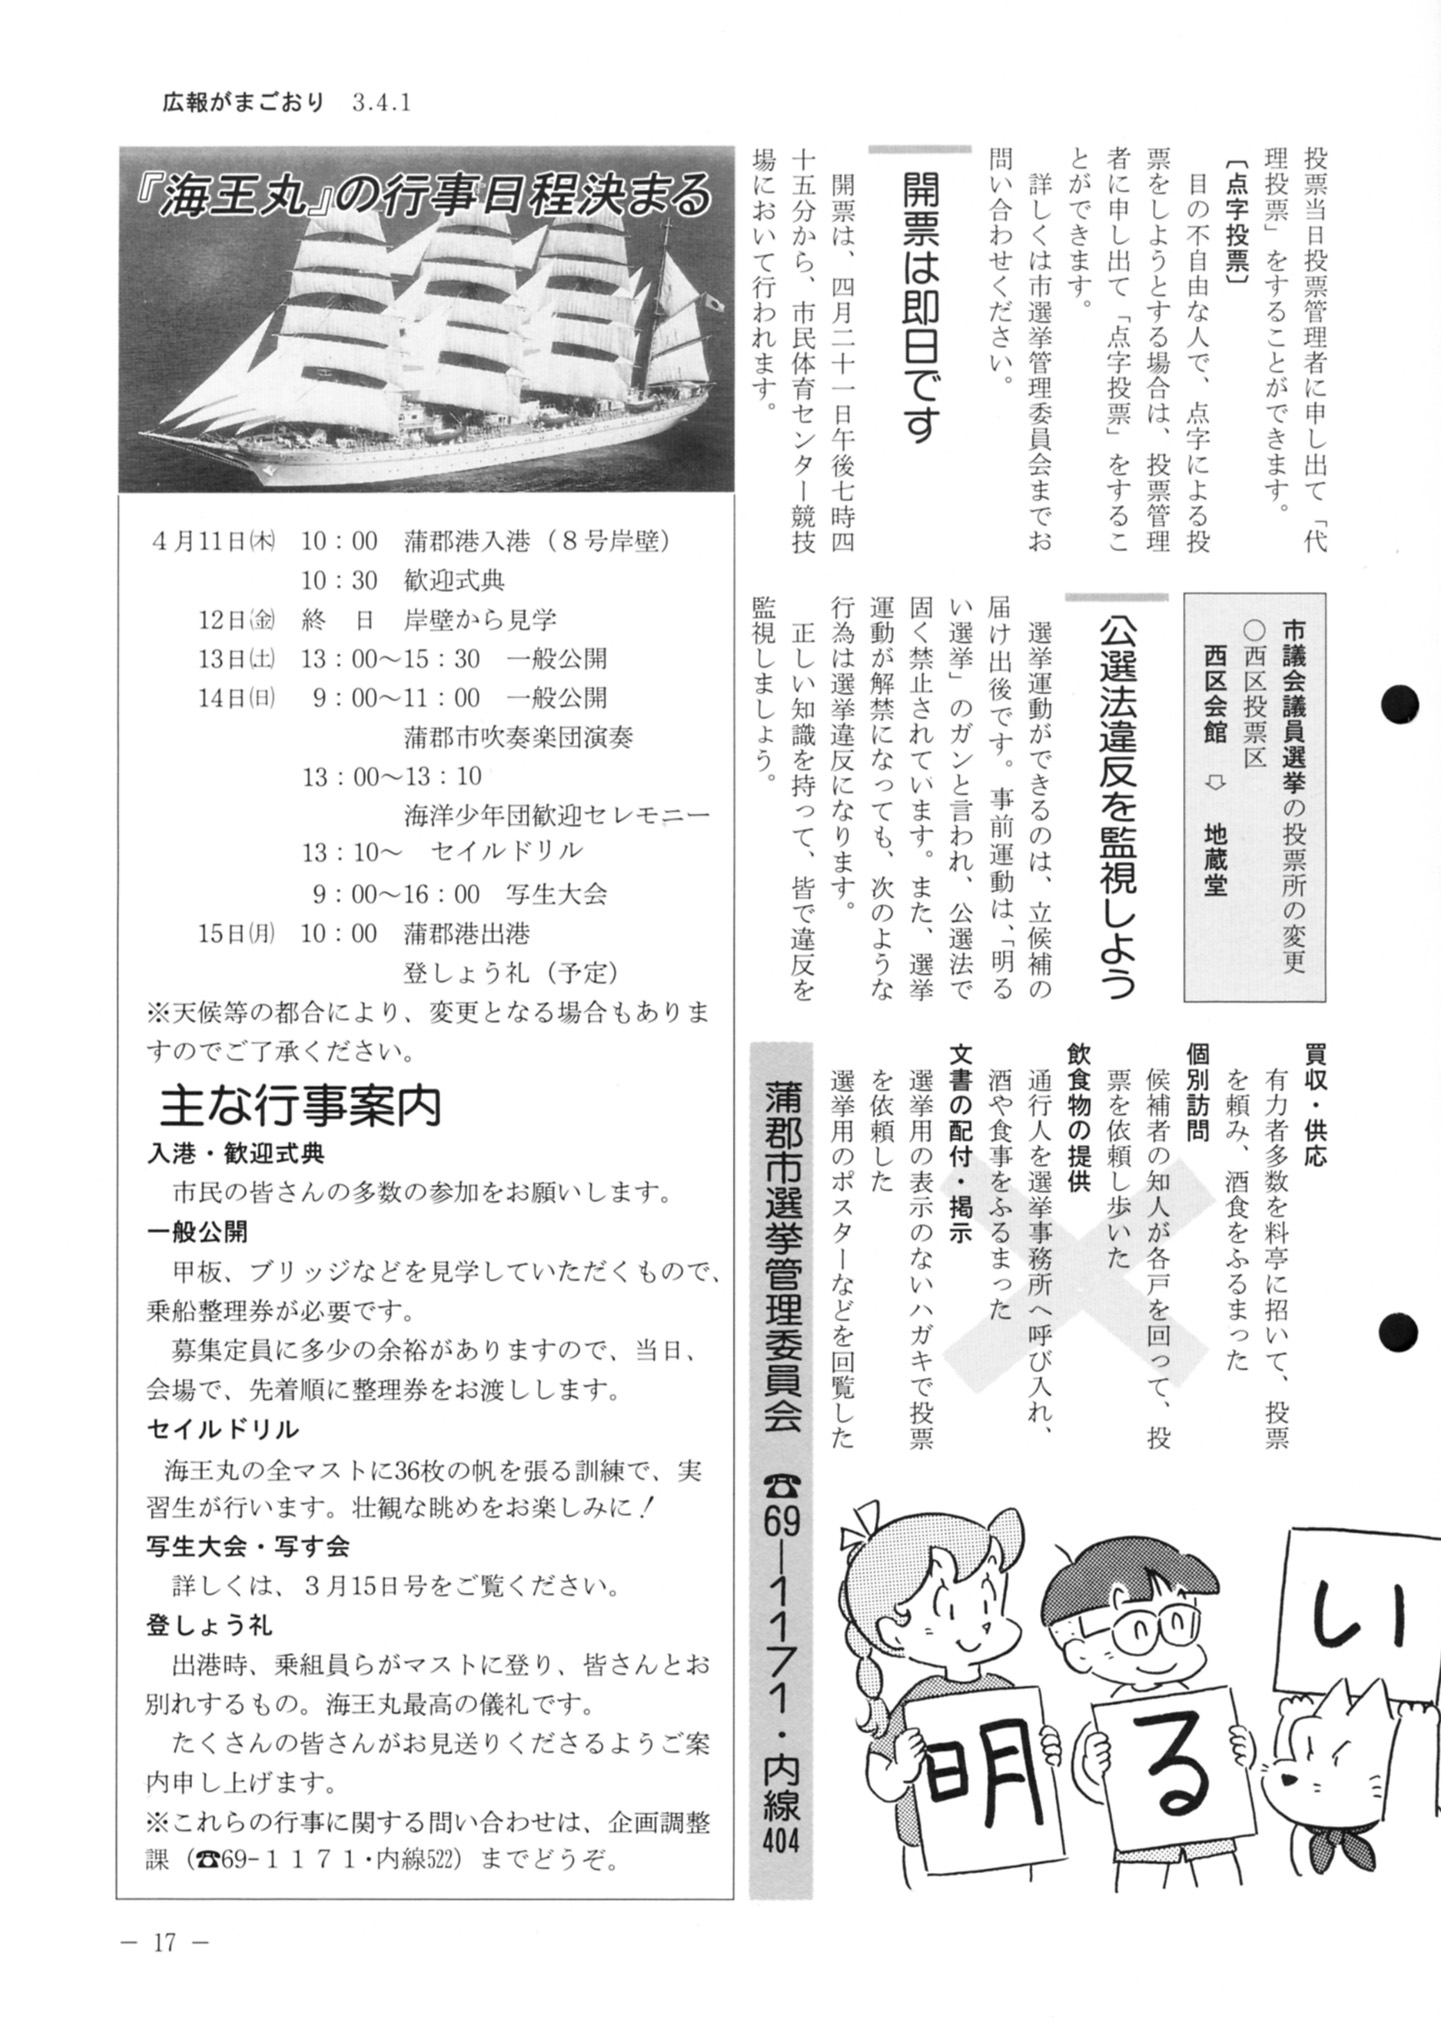 広報がまごおり 3.4.1
投票当日投票管理者に申し出て「代
理投票」をすることができます。
〔点字投票〕
目の不自由な人で、点字による投
票をしようとする場合は、投票管理
者に申し出て「点字投票」をするこ
とができます。
詳しくは市選挙管理委員会までお
問い合わせください。
開票は即日です
開票は、四月二十一日午後七時四
十五分から、市民体育センター競技
場において行われます。
市議会議員選挙の投票所の変更
○西区投票区
西区会館 ⇨ 地蔵堂
公選法違反を監視しよう
選挙運動ができるのは、立候補の
届け出後です。事前運動は、「明る
い選挙」のガンと言われ、公選法で
固く禁止されています。また、選挙
運動が解禁になっても、次のような
行為は選挙違反になります。
正しい知識を持って、皆で違反を
監視しましょう。
買収・供応
有力者多数を料亭に招いて、投票
を頼み、酒食をふるまった
個別訪問
候補者の知人が各戸を回って、投
票を依頼し歩いた
飲食物の提供
通行人を選挙事務所へ呼び入れ、
酒や食事をふるまった
文書の配付・掲示
選挙用の表示のないハガキで投票
を依頼した
選挙用のポスターなどを回覧した
蒲郡市選挙管理委員会 ☎69―1171・内線404
明
る
い
『海王丸』の行事日程決まる
4月11日㈭ 10：00 蒲郡港入港（8号岸壁）
10：30 歓迎式典
12日㈮ 終 日 岸壁から見学
13日㈯ 13：00～15：30 一般公開
14日㈰ 9：00～11：00 一般公開
蒲郡市吹奏楽団演奏
13：00～13：10
海洋少年団歓迎セレモニー
13：10～ セイルドリル
9：00～16：00 写生大会
15日㈪ 10：00 蒲郡港出港
登しょう礼（予定）
※天候等の都合により、変更となる場合もありま
すのでご了承ください。
主な行事案内
入港・歓迎式典
市民の皆さんの多数の参加をお願いします。
一般公開
甲板、ブリッジなどを見学していただくもので、
乗船整理券が必要です。
募集定員に多少の余裕がありますので、当日、
会場で、先着順に整理券をお渡しします。
セイルドリル
海王丸の全マストに36枚の帆を張る訓練で、実
習生が行います。壮観な眺めをお楽しみに！
写生大会・写す会
詳しくは、3月15日号をご覧ください。
登しょう礼
出港時、乗組員らがマストに登り、皆さんとお
別れするもの。海王丸最高の儀礼です。
たくさんの皆さんがお見送りくださるようご案
内申し上げます。
※これらの行事に関する問い合わせは、企画調整
課（☎69-1171・内線522）までどうぞ。
― 17 ―